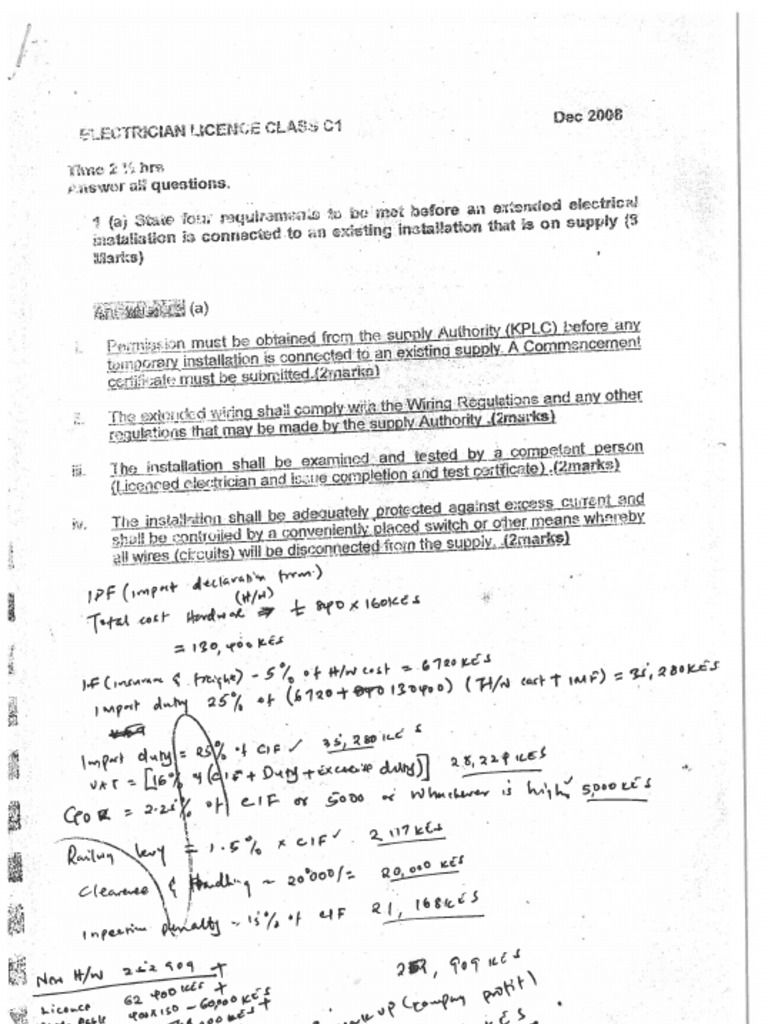 ELECTRICIAN LICENCE CLASS C1
Dec 2008
Time 2 ½ hrs
Answer all questions.
1 (a) State four requirements to be met before an extended electrical
installation is connected to an existing installation that is on supply (8
Marks)
(a)
i. Permission must be obtained from the supply Authority (KPLC) before any
temporary installation is connected to an existing supply. A Commencement
certificate must be submitted.(2marks)
ii. The extended wiring shall comply with the Wiring Regulations and any other
regulations that may be made by the supply Authority .(2marks)
iii. The installation shall be examined and tested by a competent person
(Licenced electrician and issue completion and test certificate) .(2marks)
iv. The installation shall be adequately protected against excess current and
shall be controlled by a conveniently placed switch or other means whereby
all wires (circuits) will be disconnected from the supply. .(2marks)
IDF (import declaration form)
(H/W)
Total cost Hardware 840 x 160KES
= 130,400KES
IF (insurance & freight) - 5% of H/W cost = 6720KES
Import duty 25% of (6720 + 130400) (H/W cost + IMF) = 35,280KES
Import duty = 25% of CIF ✓ 35,280 KES
VAT = [16% of (CIF + Duty + excercise duty)] 28,229 KES
= 2.25% of CIF or 5000 or whichever is high 5,000KES
Railway levy = 1.5% x CIF ✓ 2,117KES
Clearance & Handling ~ 20'000/= 20,000 KES
Inpection penalty ~ 15% of CIF 21,168KES
Non H/W 252 909 +
909 KES
Licence 62 400 KES +
400x150 - 60,000 KES
up (company profit)
KES